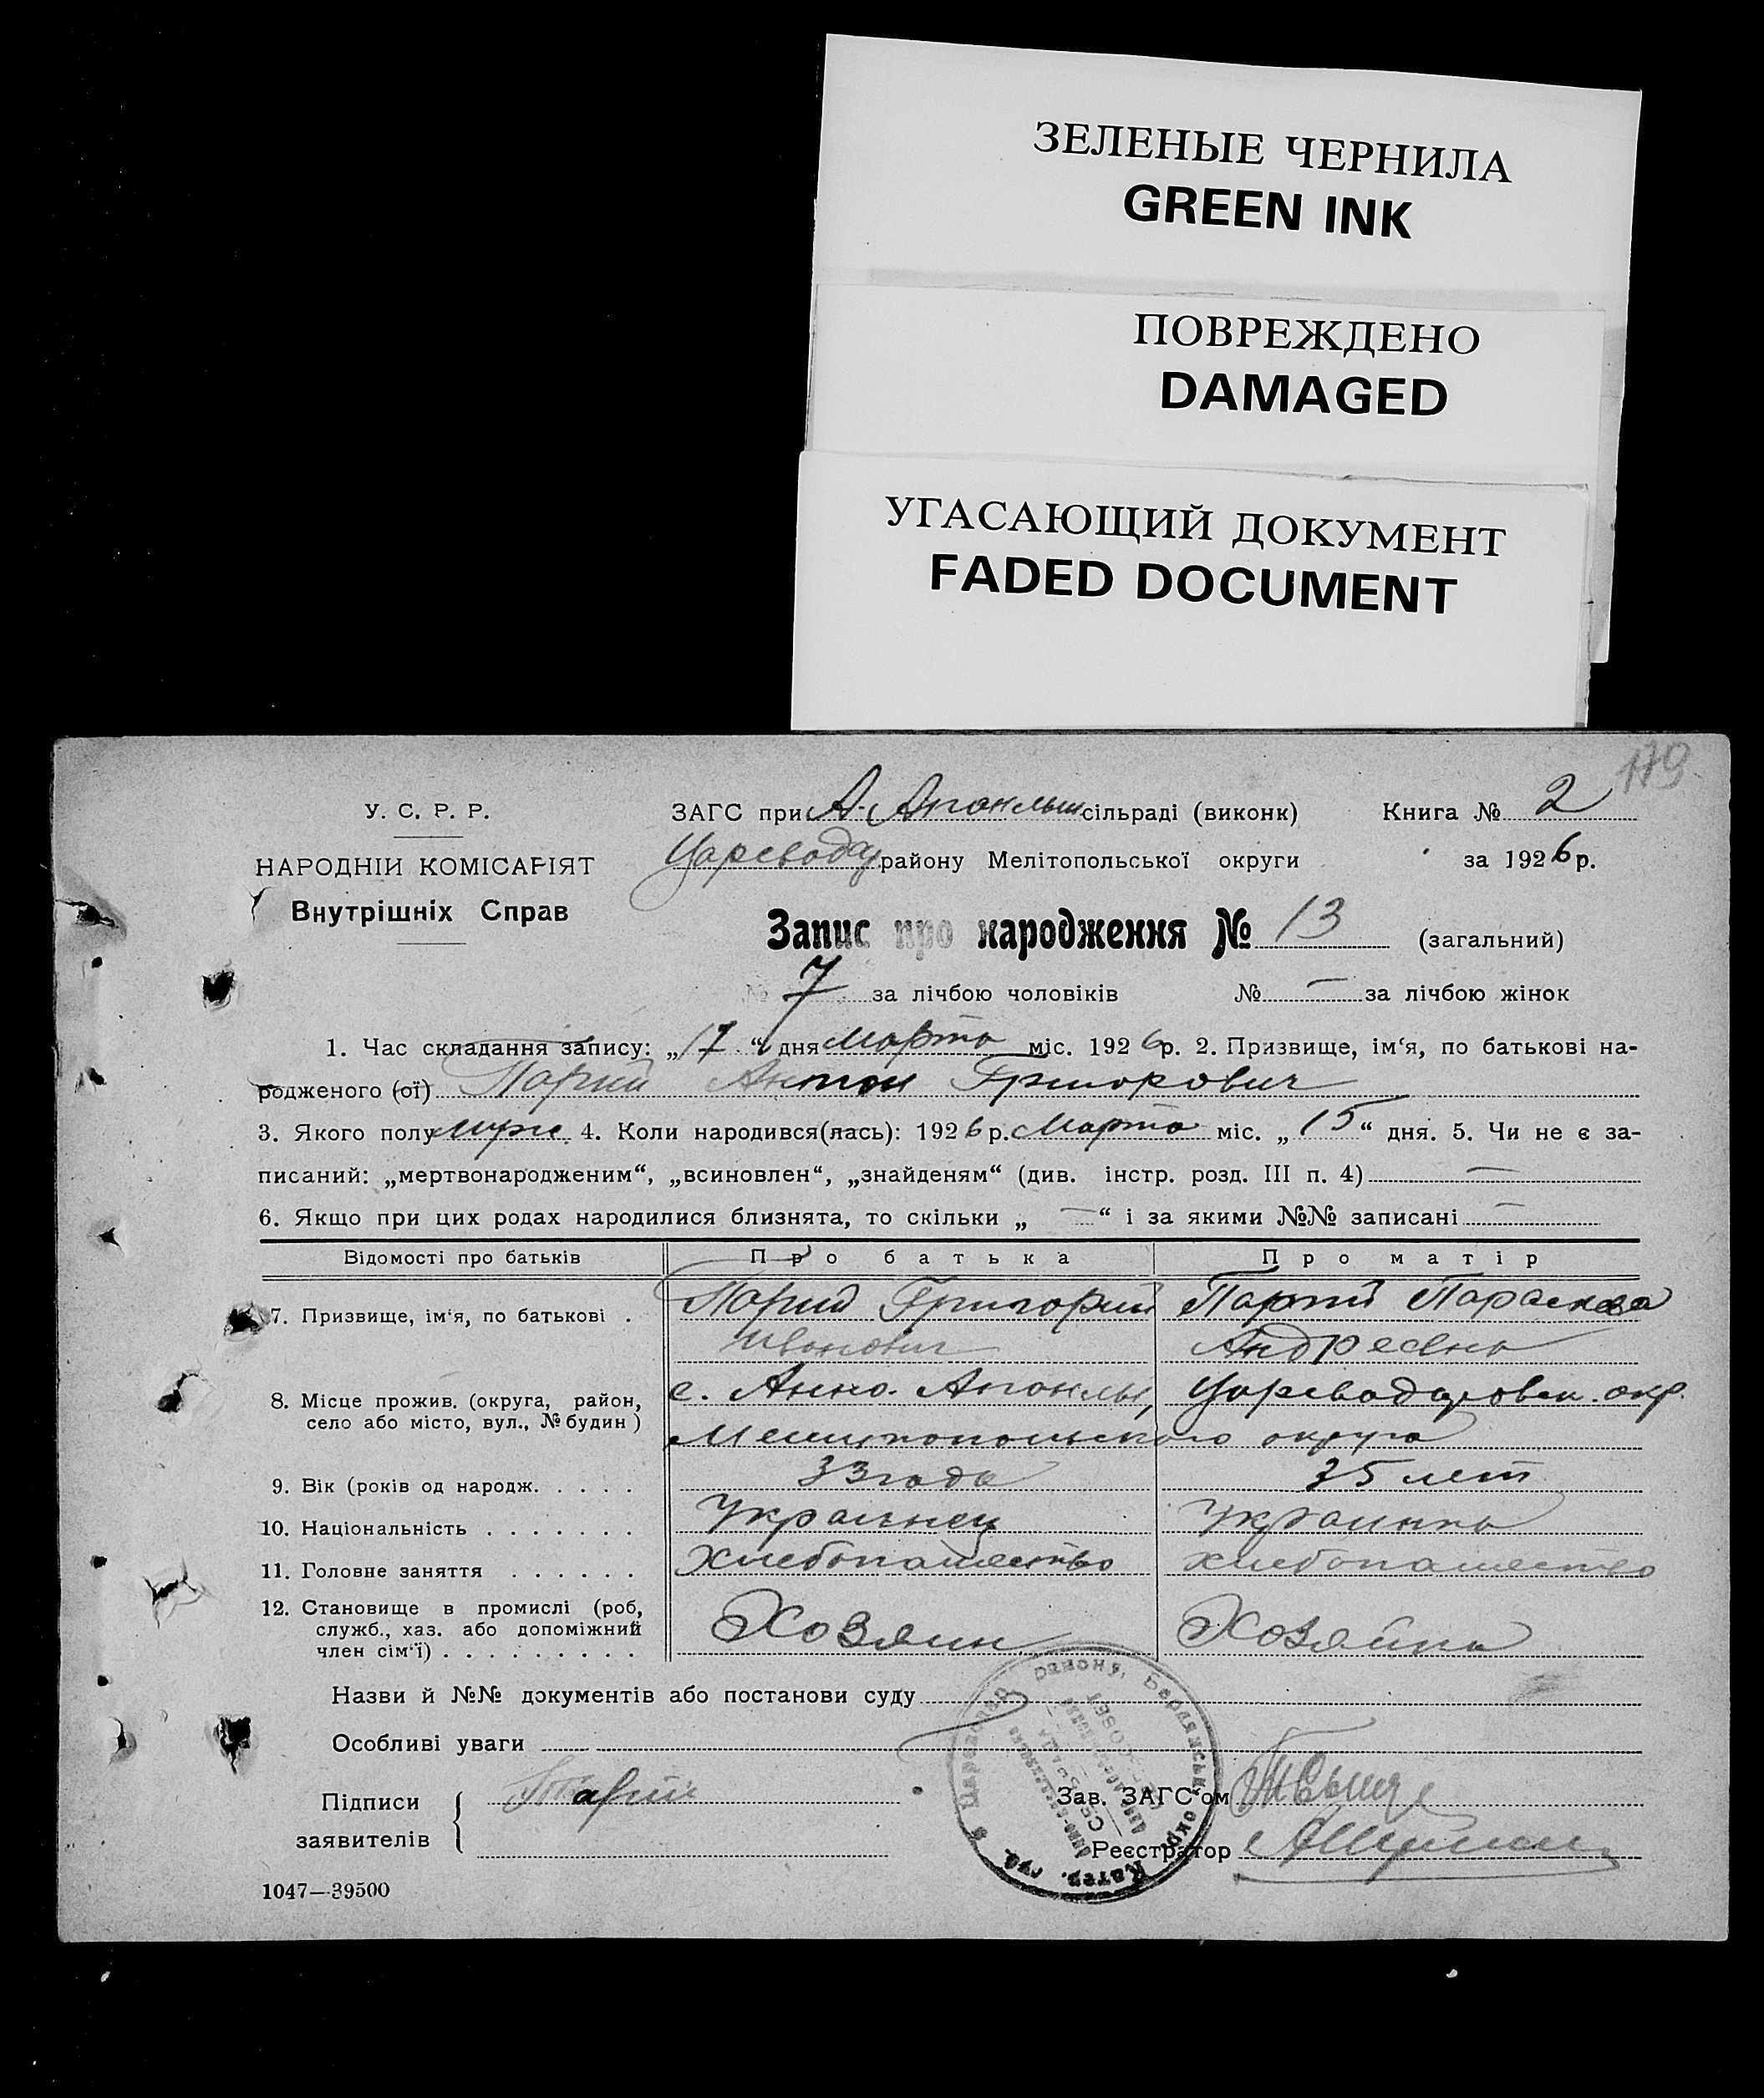 ЗЕЛЕНЫЕ ЧЕРНИЛА
GREEN INK
ПОВРЕЖДЕНО
DAMAGED
УГАСАЮЩИЙ ДОКУМЕНТ
FADED DOCUMENT
179
У. С. Р. Р.
НАРОДНІЙ КОМІСАРІЯТ
Внутрішніх Справ
ЗАГС при А-Апокльш сільраді (виконк) Книга № 2
Царевода району Мелітопольської округи за 1926 р.
Запис про народження № 13 (загальний)
№ 7 за лічбою чоловіків № — за лічбою жінок
1. Час складання запису: „17“ дня Марта міс. 1926 р. 2. Призвище, ім'я, по батькові на-
родженого (ої) Парий Антон Григорович
3. Якого полу муж. 4. Коли народився(лась): 1926 р. Марта міс. „15“ дня. 5. Чи не є за-
писаний: „мертвонародженим“, „всиновлен“, „знайденям“ (див. інстр. розд. III п. 4) —
6. Якщо при цих родах народилися близнята, то скільки „—“ і за якими №№ записані —
Відомості про батьків Про батька Про матір
7. Призвище, ім'я, по батькові . Парий Григорий Парий Параскева
Иванович Андреевна
8. Місце прожив. (округа, район, с. Анно. Апокльш, Царевода
село або місто, вул., № будин) Мелитопольского округа
9. Вік (років од народж. . . . . 33 года 35 лет
10. Національність . . . . . . . Украинец Украинка
11. Головне заняття . . . . . . Хлебопашество хлебопашество
12. Становище в промислі (роб, Хозяин Хозяйка
служб., хаз. або допоміжний
член сім'ї) . . . . . . . . .
Назви й №№ документів або постанови суду
Особливі уваги
Підписи заявителів Парий
Зав. ЗАГС'ом
Реєстратор
1047—39500